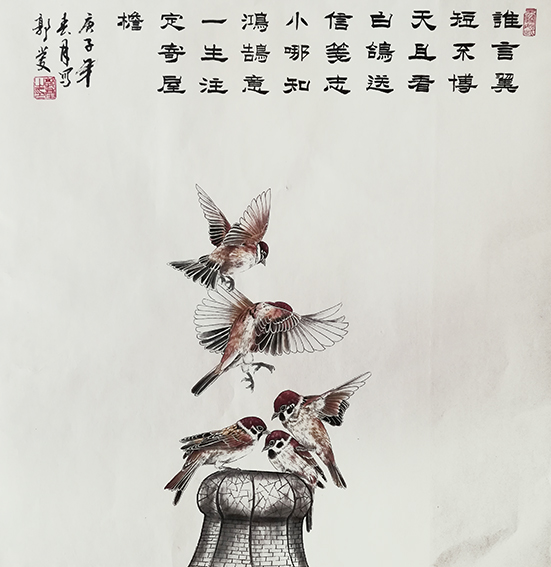 誰言翼
短不博
天且看
白鴿送
信義志
小哪知
鴻鵠意
一生注
定寄屋
檐
庚子年
春月寫
郭愛